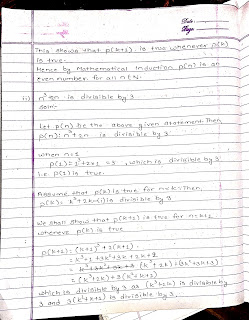 Date:
Page
This shows that p(k+1) is true whenever p(k)
is true.
Hence by Mathematical Induction p(n) is an
even number for all n ∈ N.
ii) is divisible by 3
Let p(n) be the above given statement. Then
p(n): n³+2n is divisible by 3
when n=1
p(1)= 1³+2×1 = 3 which is divisible by 3
i.e. p(1) is true.
Assume that p(k) is true for n=k. Then,
p(k)= k³+2k is divisible by 3
We shall show that p(k+1) is true for n=k+1
whenever p(k) is true
p(k+1): (k+1)³ + 2(k+1)
k³+1+3k²+3k+2k+2
(k³+2k)+3k²+3k+3
(k³+2k)+3(k²+k+1)
which is divisible by 3 as (k³+2k) is divisible by
3 and 3(k²+k+1) is divisible by 3.